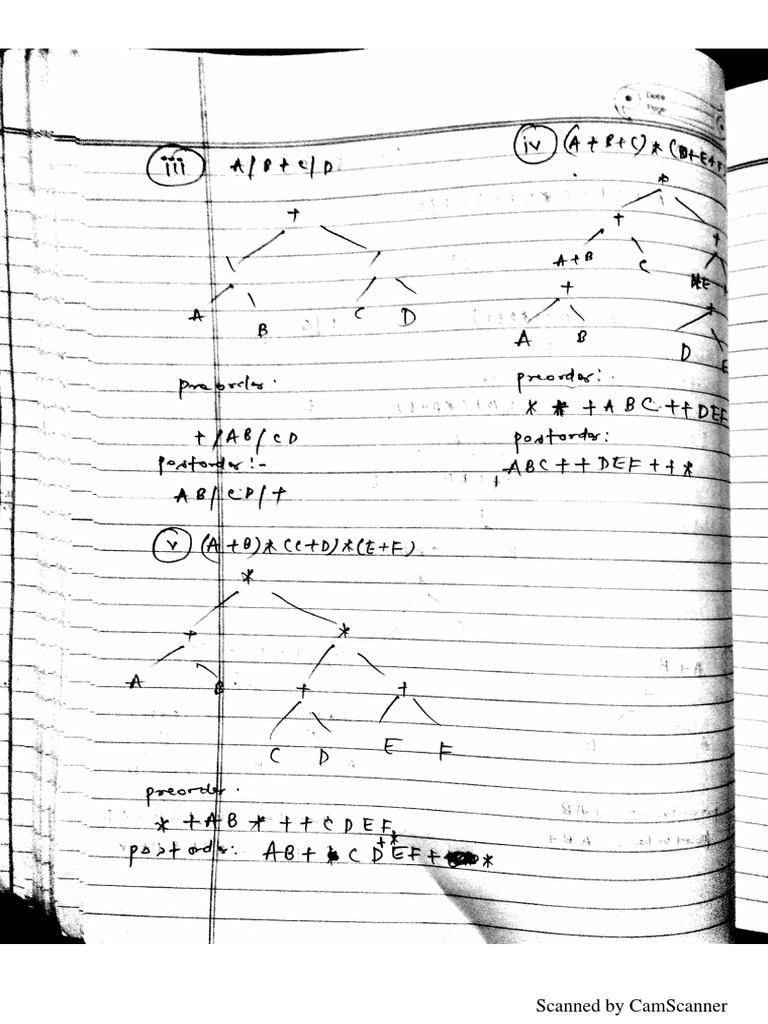 Date
Page
iii A/B + C/D
+
A B C D
preorder.
+/AB/CD
postorder:-
AB/CD/+
iv (A+B+C)*(D+E+F)
*
+ +
A+B C
+ +
A B D E
preorder:-
* + A B C + + D E F
postorder:
A B C + + D E F + + *
v (A+B)*(C+D)*(E+F)
*
+ *
A B + +
C D E F
preorder.
* + A B * + + C D E F
postorder: A B + C D + * E F + *
Scanned by CamScanner